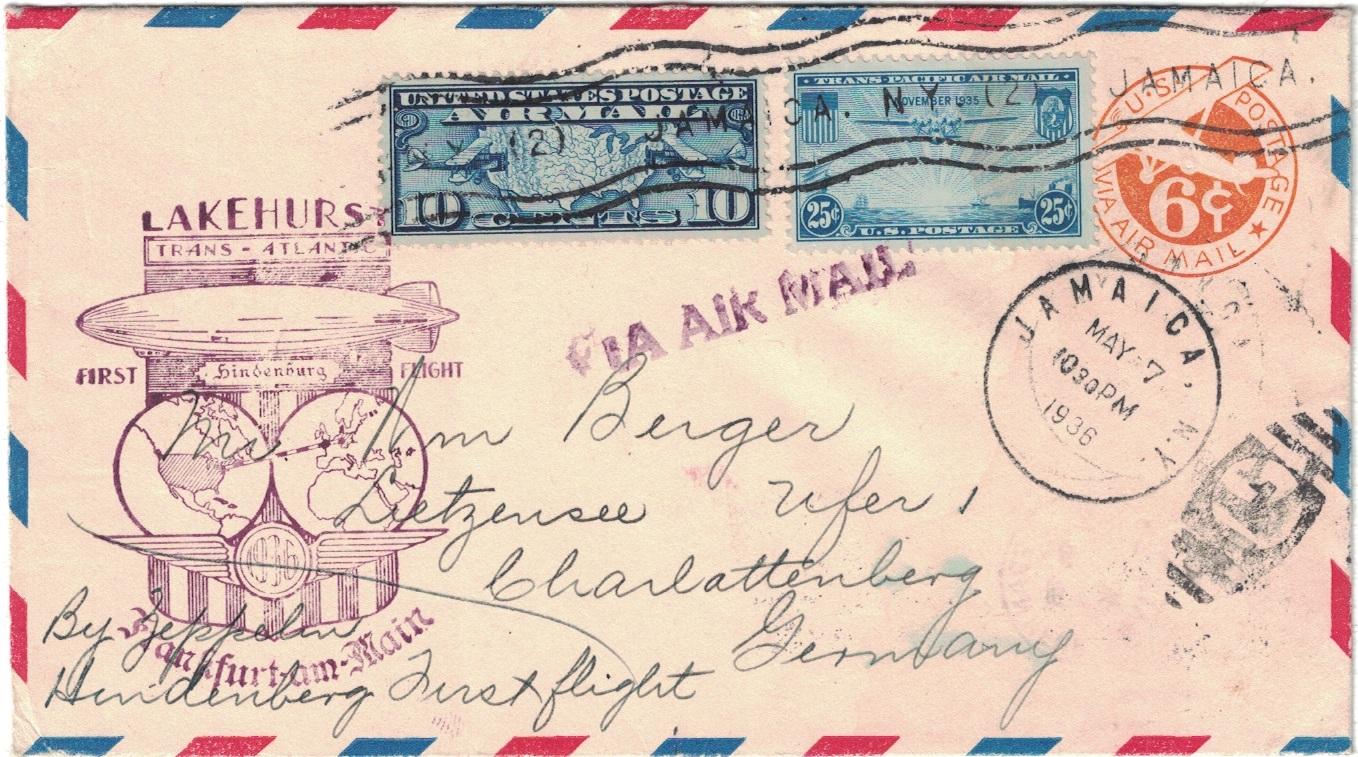 UNITED STATES POSTAGE
AIR MAIL
10 CENTS 10
TRANS-PACIFIC AIR MAIL
NOVEMBER 1935
25¢ 25¢
U.S. POSTAGE
U.S. POSTAGE
6¢
VIA AIR MAIL
(2) JAMAICA. N.Y. (2) JAMAICA.
LAKEHURST
TRANS-ATLANTIC
FIRST Hindenburg FLIGHT
1936
Frankfurt-am-Main
VIA AIR MAIL
JAMAICA, N.Y.
MAY 7
1030PM
1936
Mrs Wm Berger
Lietzensee Ufer 1
Charlattenberg
Germany
By Zeppelin
Hindenberg First flight